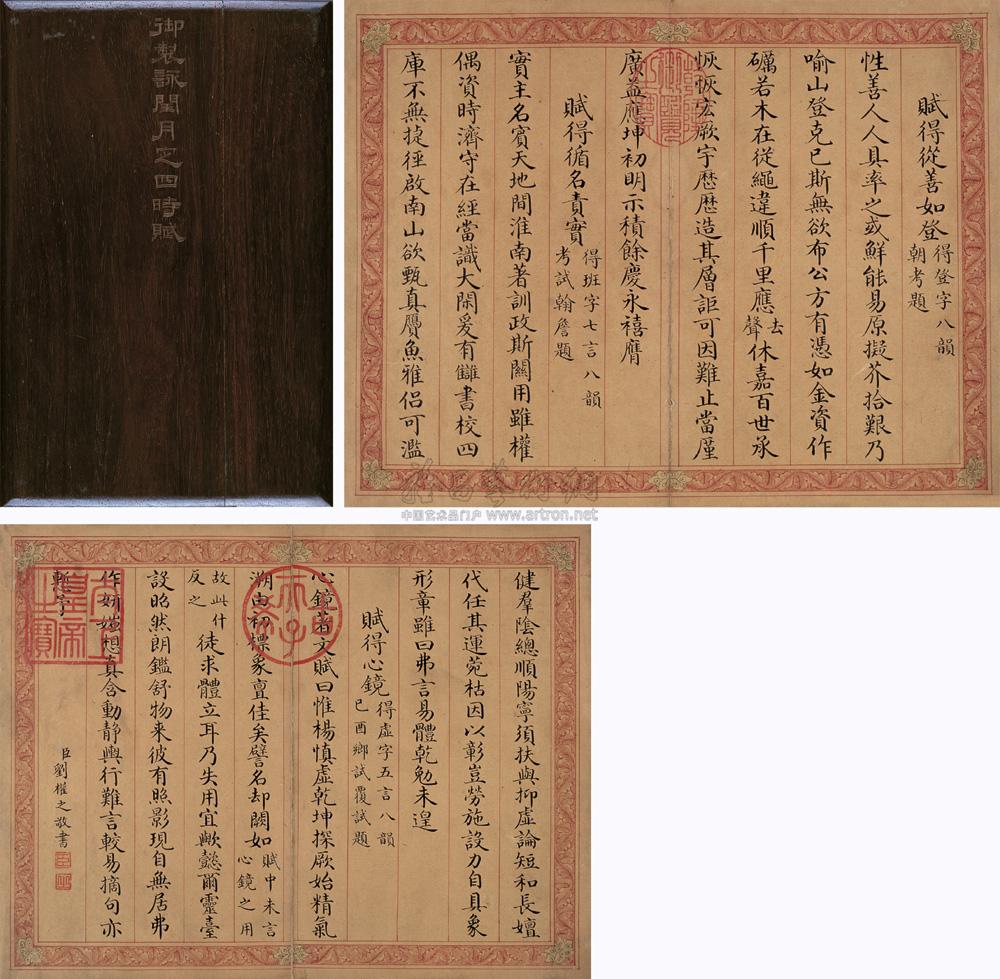 御製詠閏月定四時賦
賦得從善如登得登字八韻朝考題
性善人人具率之或鮮能易原擬芥拾艱乃
喻山登克已斯無欲布公方有憑如金資作
礪若木在從繩違順千里應去聲休嘉百世承
恢恢宏厥宇歷歷造其層詎可因難止當廑
廣益應坤初明示積餘慶永禧膺
賦得循名責實得班字七言八韻考試翰詹題
實主名賓天地間淮南著訓政斯關用雖權
偶資時濟守在經當識大閑爰有讎書校四
庫不無捷徑啟南山欲甄真贗魚雅侶可濫
中国艺术品门户 www.artron.net
健羣陰總順陽寧須扶與抑虛論短和長嬗
代任其運菀枯因以彰豈勞施設力自具象
形章雖曰弗言易體乾勉未遑
賦得心鏡得虛字五言八韻己酉鄉試覆試題
心鏡著文賦曰惟楊慎虛乾坤探厥始精氣
溯由初標象亶佳矣譬名却闕如賦中未言心鏡之用
故此什反之徒求體立耳乃失用宜歟懿爾靈臺
設昭然朗鑑舒物来彼有照影現自無居弗
作妍媸想真含動靜輿行難言較易摘句亦
慙予
臣劉權之敬書
太上皇帝之寶